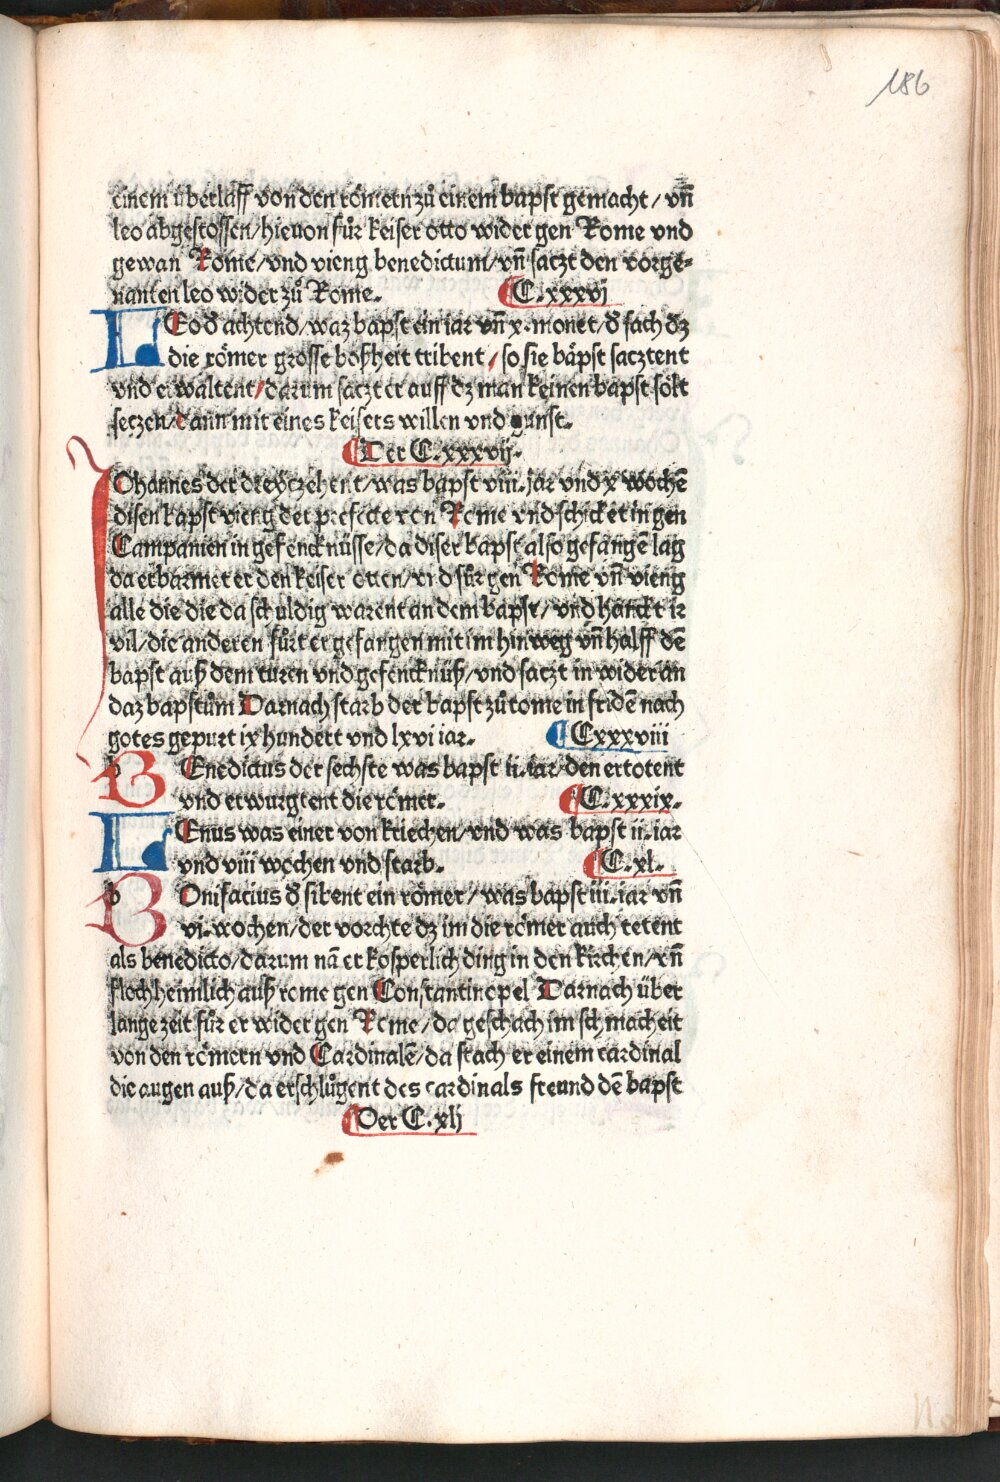 186
einem überlaff von den römern zů einem bapst gemacht / vñ
leo abgestossen / hieuon für keiser otto wider gen Rome vnd
gewan Rome / vnd vieng benedictum / vñ saczt den vorge⸗
nanten leo wider zů Rome. C.xxxvi
LEo d̕ achtend / waz bapst ein iar vñ x. monet / d̕ sach dz
die römer grosse bosheit tribent / so sie bäpst sacztent
vnd erwaltent / darum saczt er auff dz man keinen bapst sölt
seczen / dann mit eines keisers willen vnd gunst.
Der C.xxxvij.
IOhannes der dreyczehent / was bapst viii. jar vnd x wochē
disen bapst vieng der prefecte von Rome vnd schicket in gen
Campanien in gefencknüsse / da diser bapst also gefangē lag
da erbarmet er den keiser otten / vnd für gen Rome vñ vieng
alle die die da schuldig warent an dem bapst / vnd hanckt ir
vil / die anderen fůrt er gefangen mit im hinweg vñ halff dē
bapst auß dem turen vnd gefencknüß / vnd saczt in wider an
daz bapstům Darnach starb der bapst zů rome in fridē nach
gotes gepurt ix hundert vnd lxvi iar. Cxxxviii
b
BEnedictus der sechste was bapst ii. iar / den ertotent
vnd erwurgtent die römer. C.xxxix.
LEnus was einer von kriechen / vnd was bapst ii. iar
vnd viii wochen vnd starb. C.xl.
b
BOnifacius d̕ sibent ein römer / was bapst iii. iar vñ
vi. wochen / der vorchte dz im die römer auch tetent
als benedicto / darum nā er kosperlich ding in den kirchen / vñ
floch heimlich auß rome gen Constantinopel Darnach über
lange zeit für er wider gen Rome / da geschach im schmacheit
von den römern vnd Cardinalē / da stach er einem cardinal
die augen auß / da erschlůgent des cardinals freund dē bapst
Der C.xlj